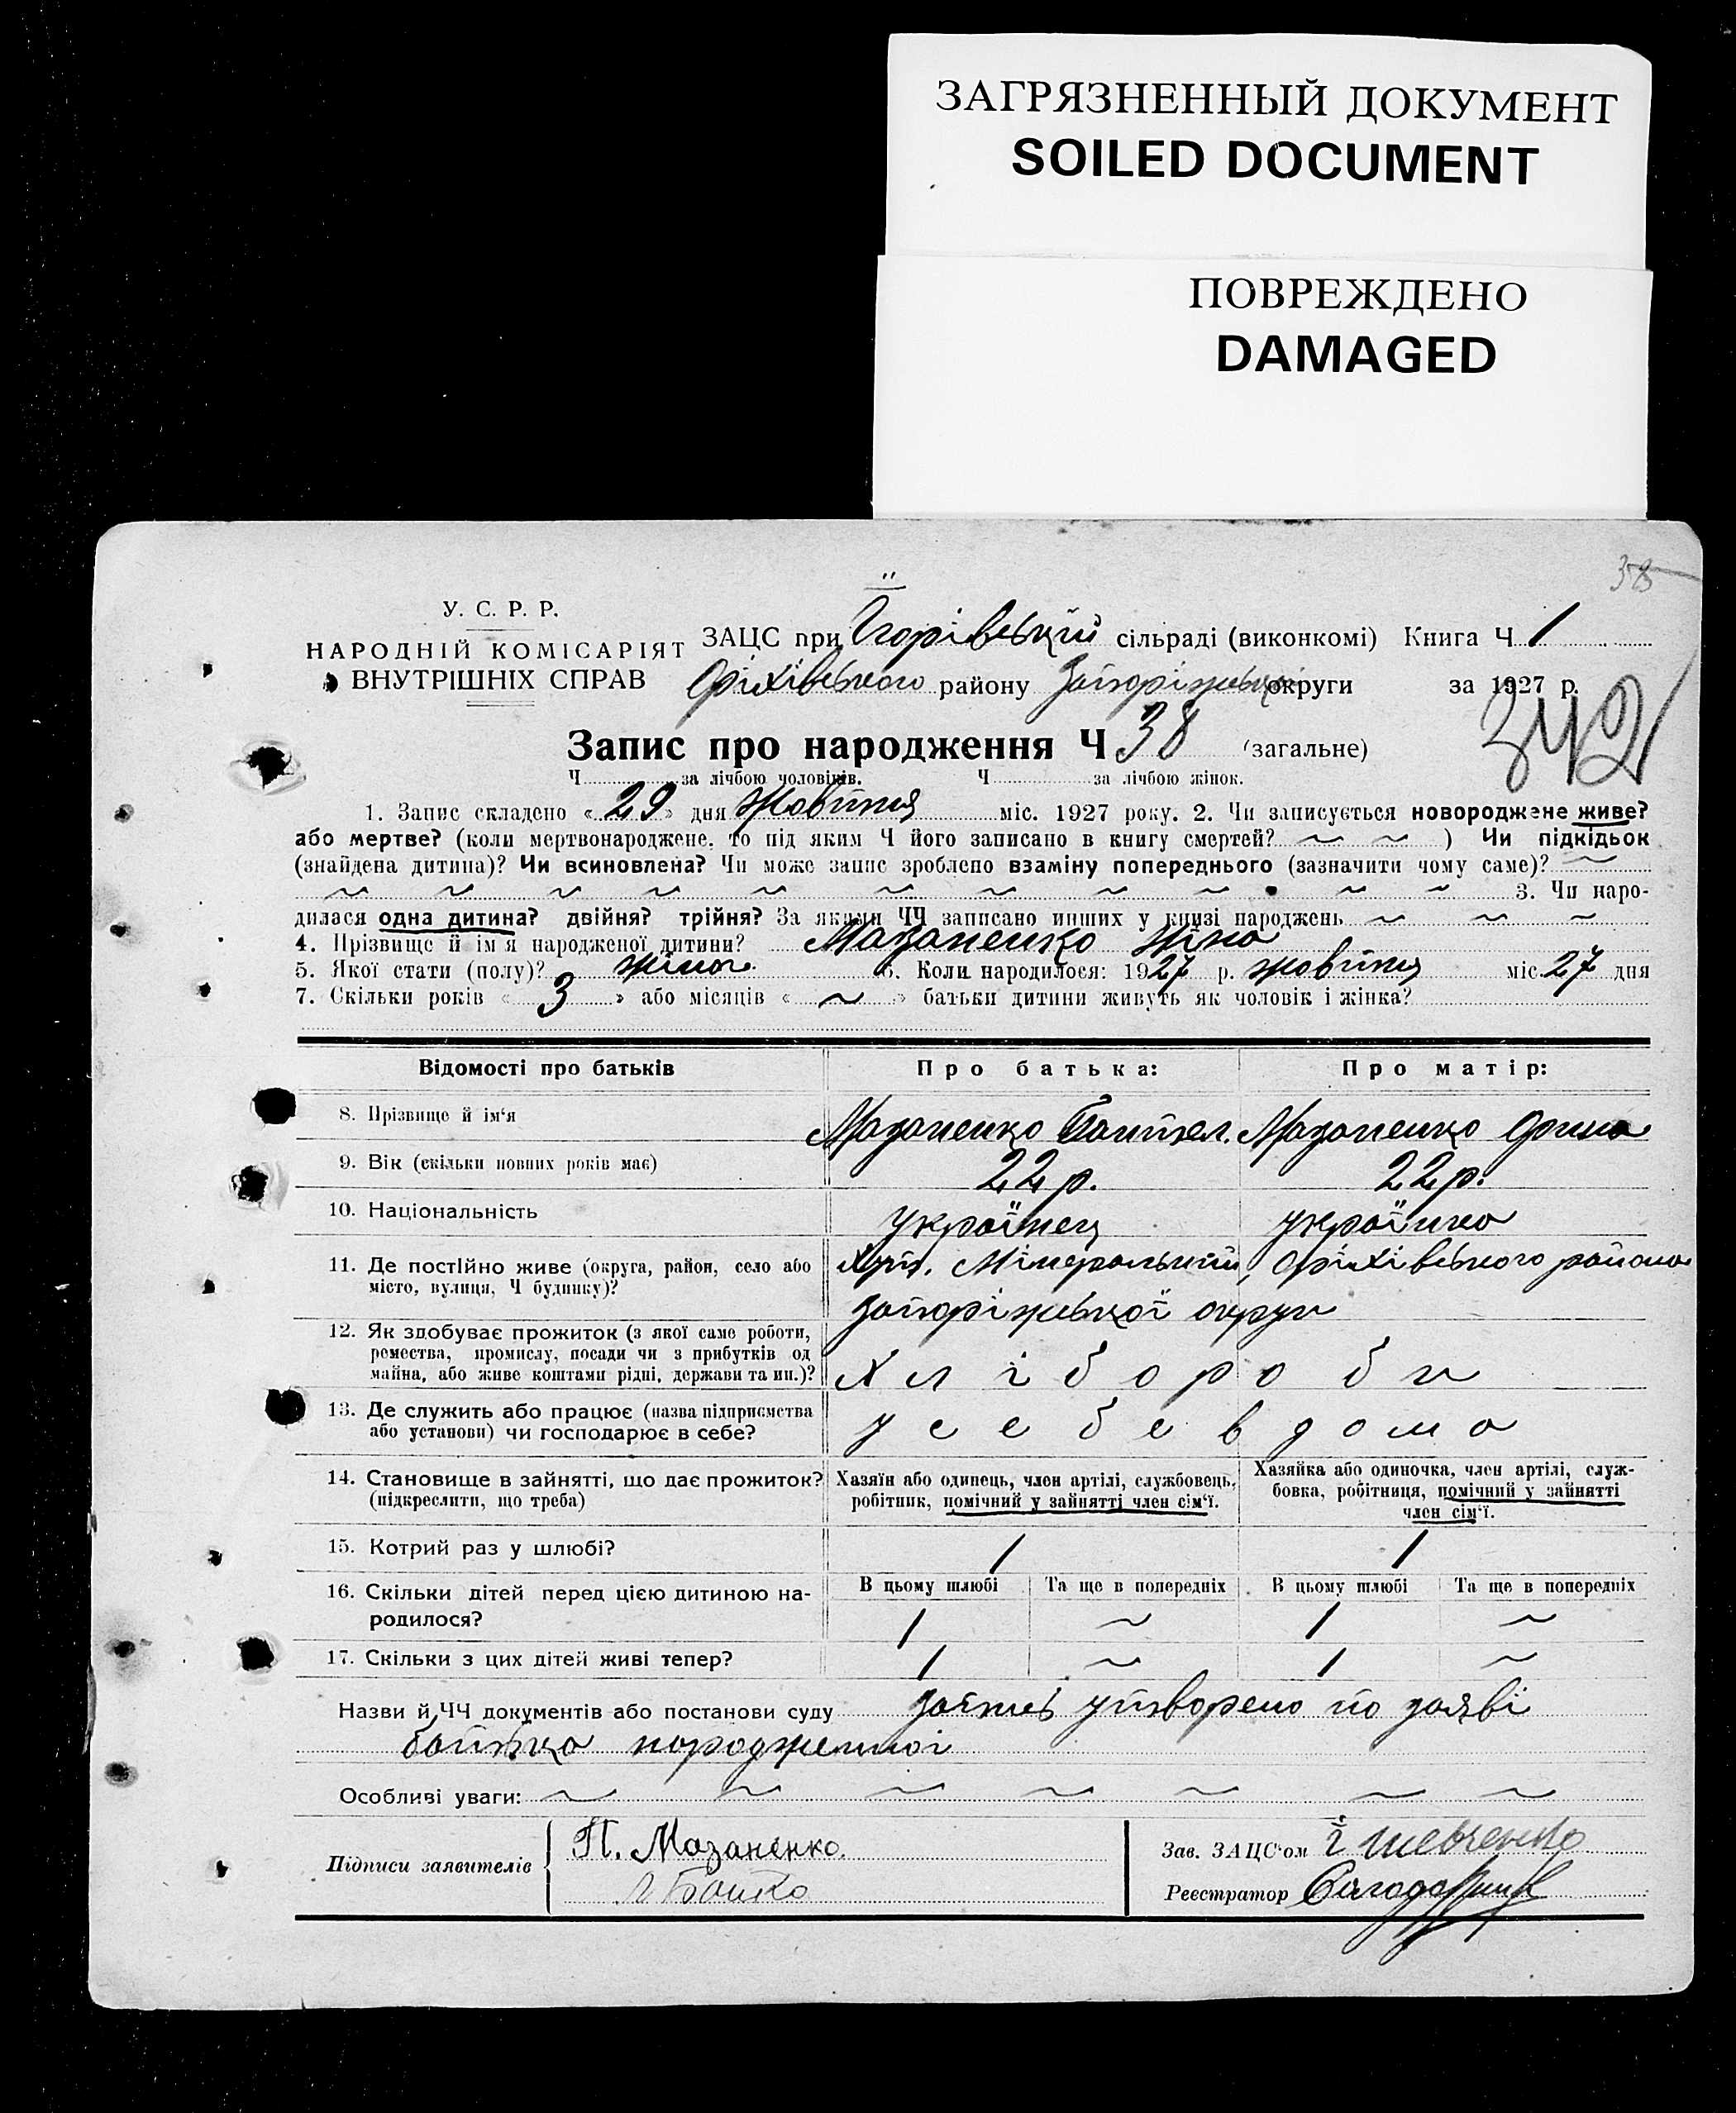 ЗАГРЯЗНЕННЫЙ ДОКУМЕНТ
SOILED DOCUMENT
ПОВРЕЖДЕНО
DAMAGED
38
У. С. Р. Р.
НАРОДНІЙ КОМІСАРІЯТ
ВНУТРІШНІХ СПРАВ
ЗАЦС при Ігорівський сільраді (виконкомі) Книга Ч 1
Оріхівського району Запоріжської округи за 1927 р.
342
Запис про народження Ч 38 (загальне)
Ч за лічбою чоловіків. Ч за лічбою жінок.
1. Запис складено «29» дня жовтня міс. 1927 року. 2. Чи записується новороджене живе?
або мертве? (коли мертвонароджене, то під яким Ч його записано в книгу смертей? ~ ~ ) Чи підкідьок
(знайдена дитина)? Чи всиновлена? Чи може запис зроблено взаміну попереднього (зазначити чому саме)? ~
~ ~ ~ ~ ~ ~ ~ ~ ~ ~ ~ 3. Чи наро-
дилася одна дитина? двійня? трійня? За якими ЧЧ записано инших у книзі народжень ~ ~ ~
4. Прізвище й ім'я народженої дитини? Мазаненко Ніна
5. Якої стати (полу)? жіноч. 6. Коли народилося: 1927 р. жовтня міс. 27 дня
7. Скільки років «3» або місяців «~» батьки дитини живуть як чоловік і жінка?
Відомості про батьків
Про батька:
Про матір:
8. Прізвище й ім'я
Мазаненко Пантел.
Мазаненко Орина
9. Вік (скільки повних років має)
22 р.
22 р.
10. Національність
українец
українка
11. Де постійно живе (округа, район, село або
місто, вулиця, Ч будинку)?
Хут. Мінеральний, Оріхівського района
запоріжської округи
12. Як здобуває прожиток (з якої саме роботи,
ремества, промислу, посади чи з прибутків од
майна, або живе коштами рідні, держави та ин.)?
Хлібороби
13. Де служить або працює (назва підприємства
або установи) чи господарює в себе?
у себе в дома
14. Становище в зайнятті, що дає прожиток?
(підкреслити, що треба)
Хазяїн або одинець, член артілі, службовець,
робітник, помічний у зайнятті член сім'ї.
Хазяйка або одиночка, член артілі, служ-
бовка, робітниця, помічний у зайнятті
член сім'ї.
15. Котрий раз у шлюбі?
1
1
16. Скільки дітей перед цією дитиною на-
родилося?
В цьому шлюбі
Та ще в попередніх
В цьому шлюбі
Та ще в попередніх
1 ~ 1 ~
17. Скільки з цих дітей живі тепер?
1 ~ 1 ~
Назви й ЧЧ документів або постанови суду запись утворено по заяві
батька народженної
Особливі уваги: ~ ~ ~ ~ ~ ~ ~
Підписи заявителів
П. Мазаненко.
Зав. ЗАЦС'ом І Шевченко
Реєстратор